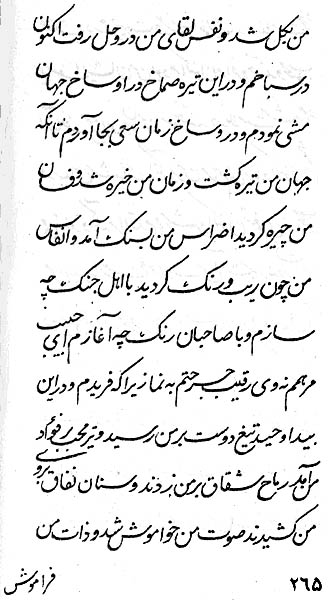 من بگل شد و نفس لقای من در وحل رفت اکنون
در سباخم و در این تیره صماخ در اوساخ جهان
مشی نمودم و در وساخ زمان سعی بجا آوردم تا آنکه
جهان من تیره گشت و زمان من خیره شد و فان
من چیره گردید اضراس من بسنک آمد و انفاس
من چون ریب و رنک گردید با اهل جنک چه
سازم و با صاحبان رنک چه آغازم ای حبیب
مرهم نه وی رقیب جر حتم به نما زیرا که فریدم و در این
بیدا وحید تیغ دوست بر من رسید و تیر محب بر فؤاد
من آمد رماح شقاق بر من زدند و سنان نفاق بروی
من کشیدند صوت من خواموش شد و ذات من
۲۶۵ فراموش